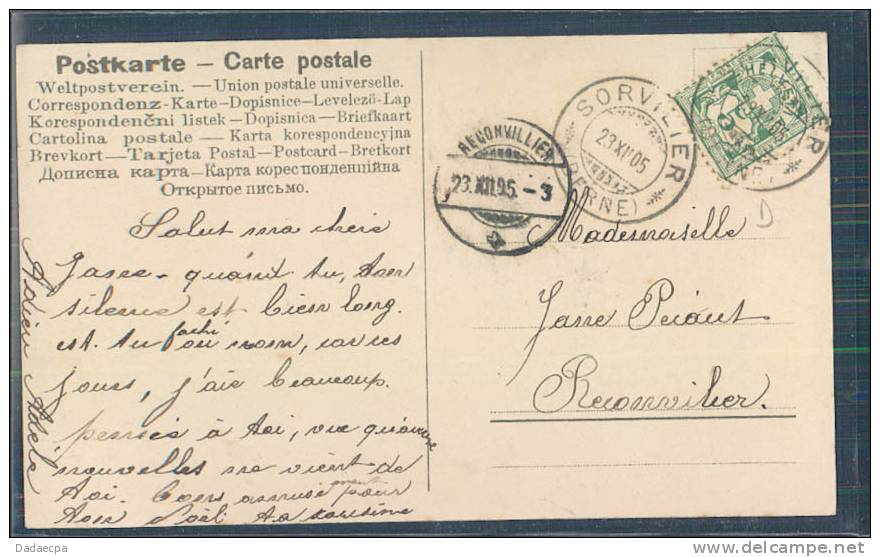 Postkarte – Carte postale
Weltpostverein. — Union postale universelle.
Correspondenz-Karte – Dopisnice – Levelező-Lap
Korespondenčni listek – Dopisnica – Briefkaart
Cartolina postale — Karta korespondencyjna
Brevkort – Tarjeta Postal – Postcard – Bretkort
Дописна карта – Карта кореспонденційна
Открытое письмо.
SORVILIER
23.XII.05
(BERNE)
RECONVILLIER
23.XII.05.-3
HELVETIA
5
D
Mademoiselle
Reconvilier.
Salut ma chère
quant tu, ton
silence est bien long.
est. tu faché ou non, car ces
jours, j'aie beaucoup
pensée à toi, vue qu'aucune
nouvelles me vient de
toi. pour
ton Noël ta cousine
Adieu Adèle
Dadaecpa
www.delcampe.net